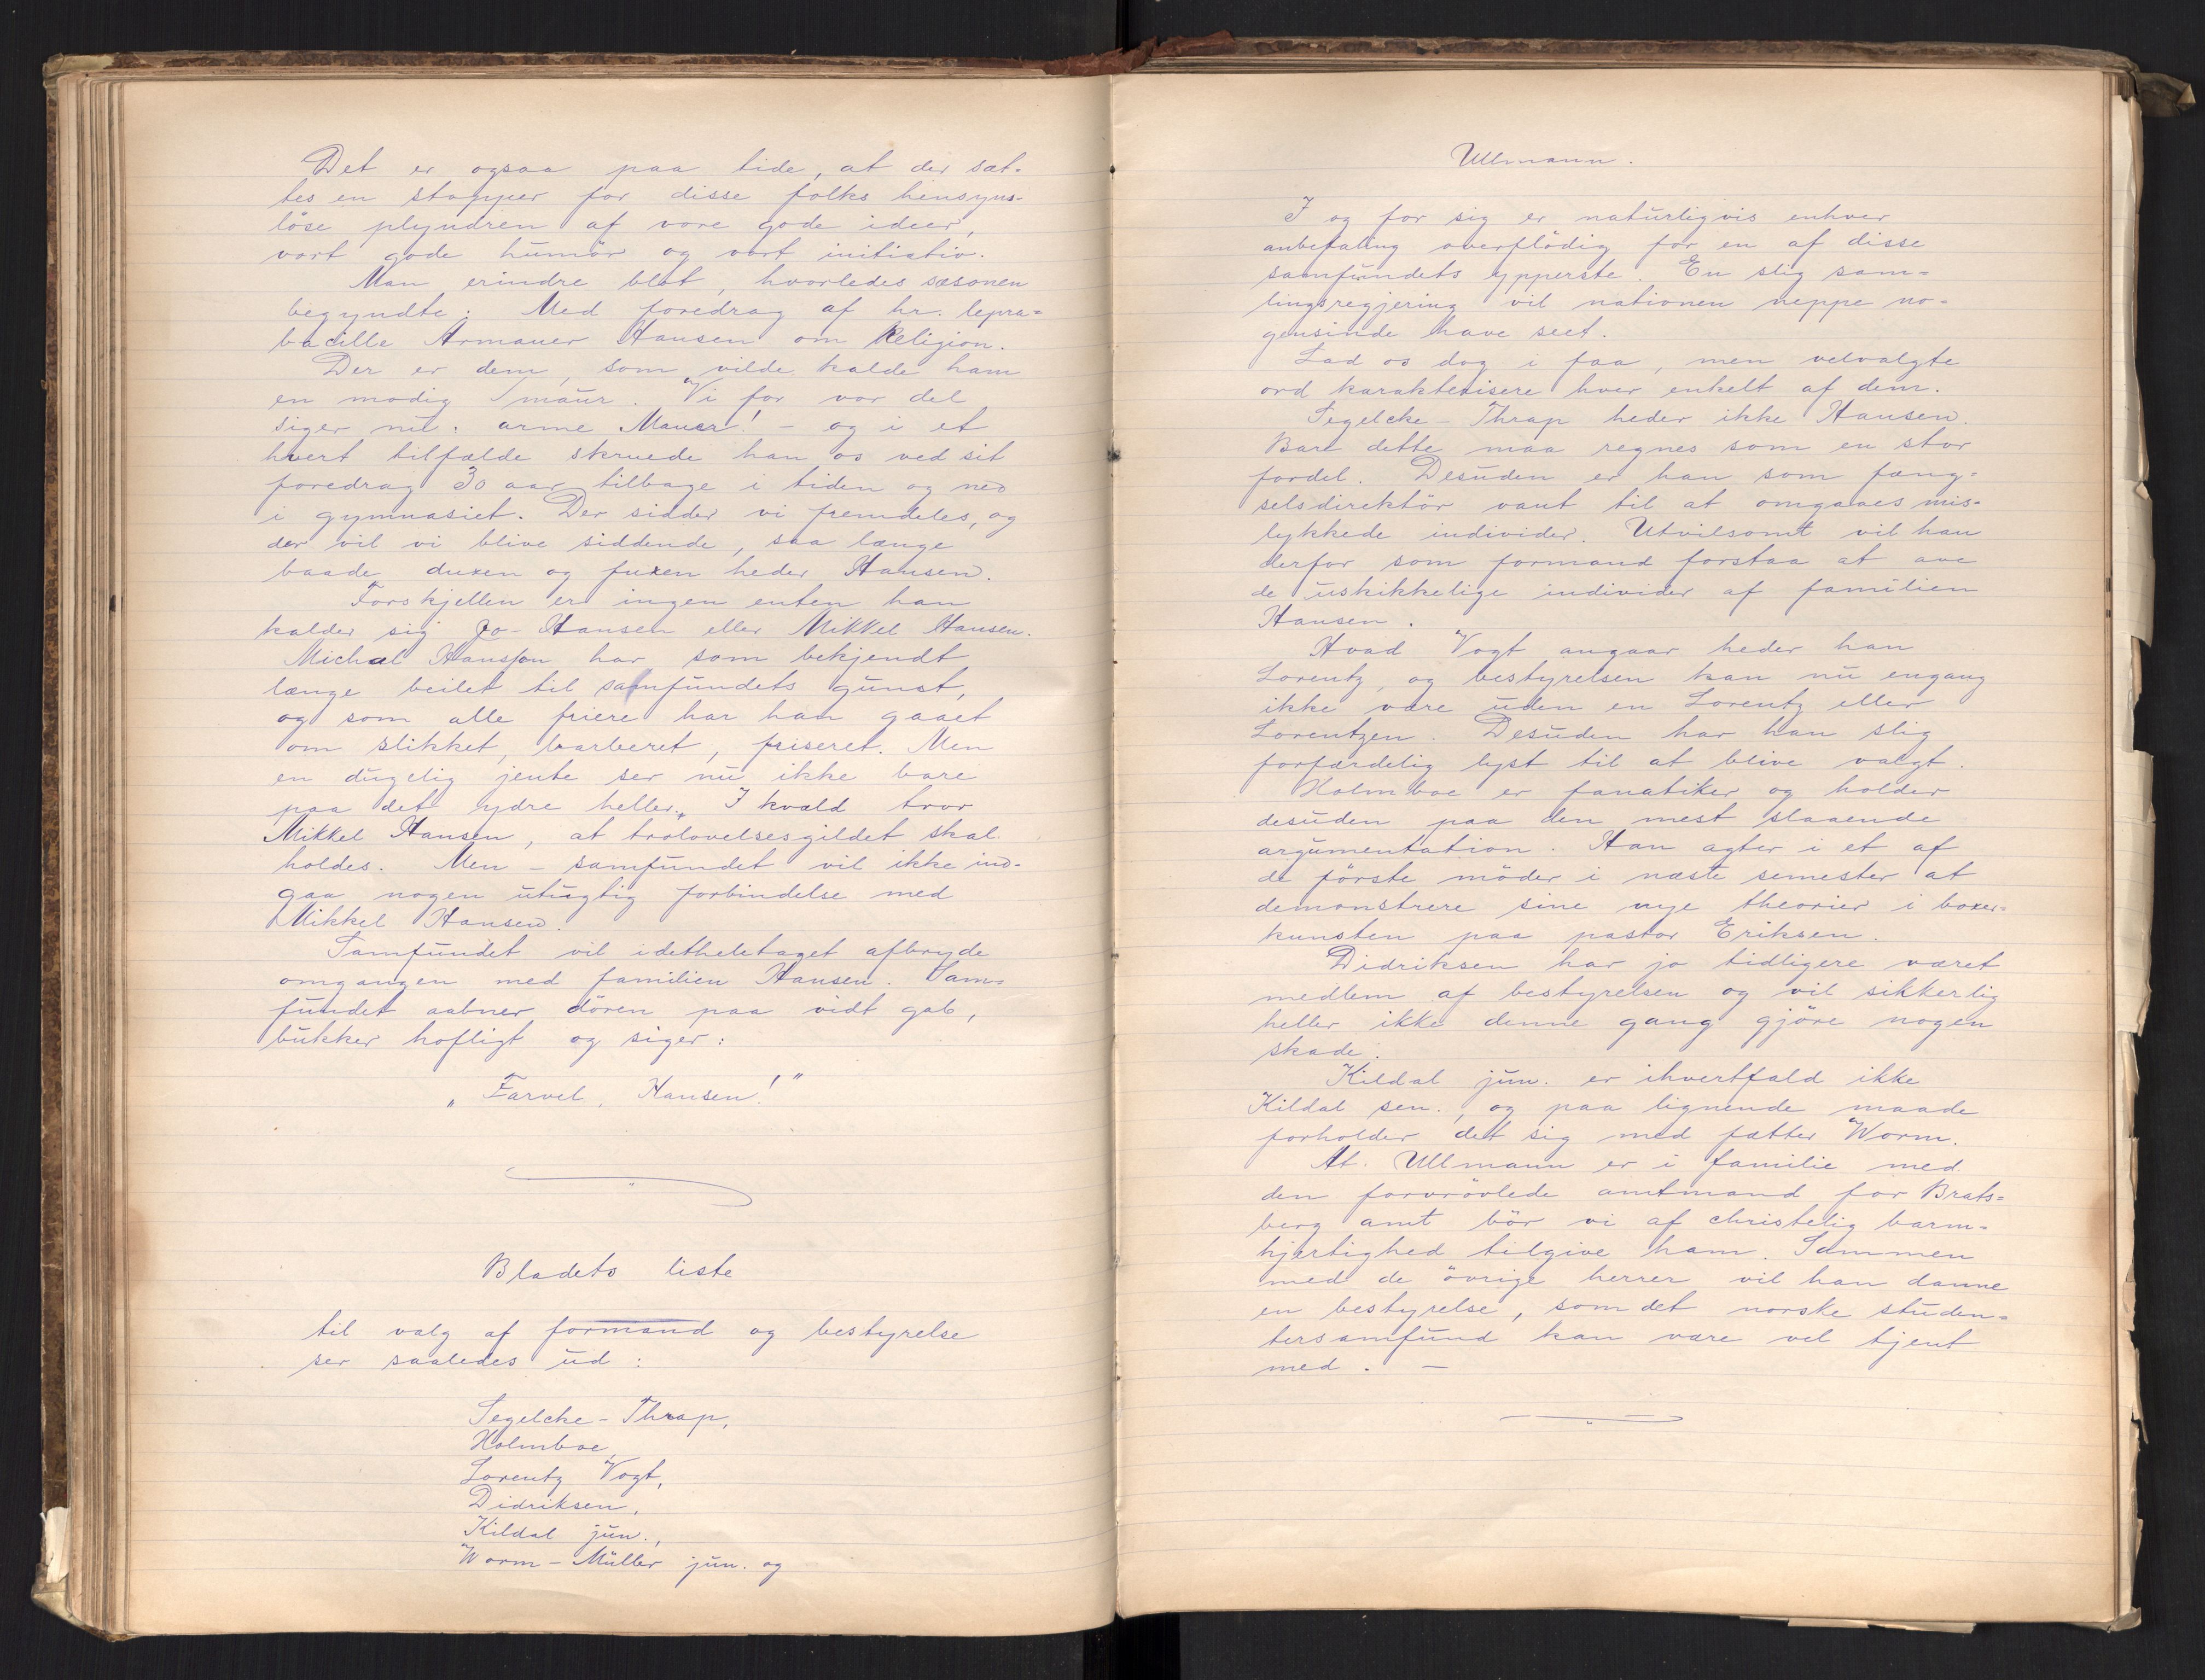 Det er ogsaa paa tide, at der sæt-
tes en stopper for disse folks hensyns-
löse plyndren af vore gode ideer,
vort gode humör og vort initiativ.
Man erindre blot, hvorledes sæsonen
begyndte: Med foredrag af hr. lepra=
bacille Armauer Hansen om Religion.
Der er dem, som vilde kalde ham
en modig maur. Vi for vor del
siger nu: arme Mauer! - og i et
hvert tilfælde skruede han os ved sit
foredrag 30 aar tilbage i tiden og ned
i gymnasiet. Der sidder vi fremdeles, og
der vil vi blive siddende, saa længe
baade duxen og fuxen heder Hansen.
Forskjellen er ingen enten han
kalder sig Jo-Hansen eller Mikkel Hansen.
Michal Hansson har som bekjendt
længe beilet til samfundets gunst,
og som alle friere har han gaaet
om slikket, barberet, friseret. Men
en dugelig jente ser nu ikke bare
paa det ydre heller. I kvæld tror
Mikkel Hansen, at trolovelsesgildet skal
holdes. Men - samfundet vil ikke ind-
gaa nogen utugtig forbindelse med
Mikkel Hansen.
Samfundet vil idetheletaget afbryde
omgangen med familien Hansen. Sam=
fundet aabner dören paa vidt gab,
bukker hofligt og siger:
„Farvel, Hansen!"
Bladets liste
til valg af formand og bestyrelse
ser saaledes ud:
Segelcke-Thrap,
Holmboe,
Lorentz Vogt,
Didriksen,
Kildal jun.,
Worm-Müller jun. og
Ullmann.
I og for sig er naturligvis enhver
anbefaling overflödig for en af disse
samfundets ypperste. En slig sam=
lingsregjering vil nationen neppe no=
gensinde have seet.
Lad os dog i faa, men velvalgte
ord karakterisere hver enkelt af dem.
Segelcke-Thrap heder ikke Hansen.
Bare dette maa regnes som en stor
fordel. Desuden er han som fæng=
selsdirektör vant til at omgaaes mis-
lykkede individer. Utvilsomt vil han
derfor som formand forstaa at ave
de uskikkelige individer af familien
Hansen.
Hvad Vogt angaar heder han
Lorentz, og bestyrelsen kan nu engang
ikke være uden en Lorentz eller
Lorentzen. Desuden har han slig
forfærdelig lyst til at blive valgt.
Holmboe er fanatiker og holder
desuden paa den mest slaaende
argumentation. Han agter i et af
de förste möder i næste semester at
demonstrere sine nye theorier i boxer=
kunsten paa pastor Eriksen.
Didriksen har jo tidligere været
medlem af bestyrelsen og vil sikkerlig
heller ikke denne gang gjöre nogen
skade.
Kildal jun. er ihvertfald ikke
Kildal sen., og paa lignende maade
forholder det sig med fætter Worm.
At Ullmann er i familie med
den forvrövlede amtmand for Brats=
berg amt bör vi af christelig barm=
hjertighed tilgive ham. Sammen
med de övrige herrer vil han danne
en bestyrelse, som det norske studen=
tersamfund kan være vel tjent
med. -